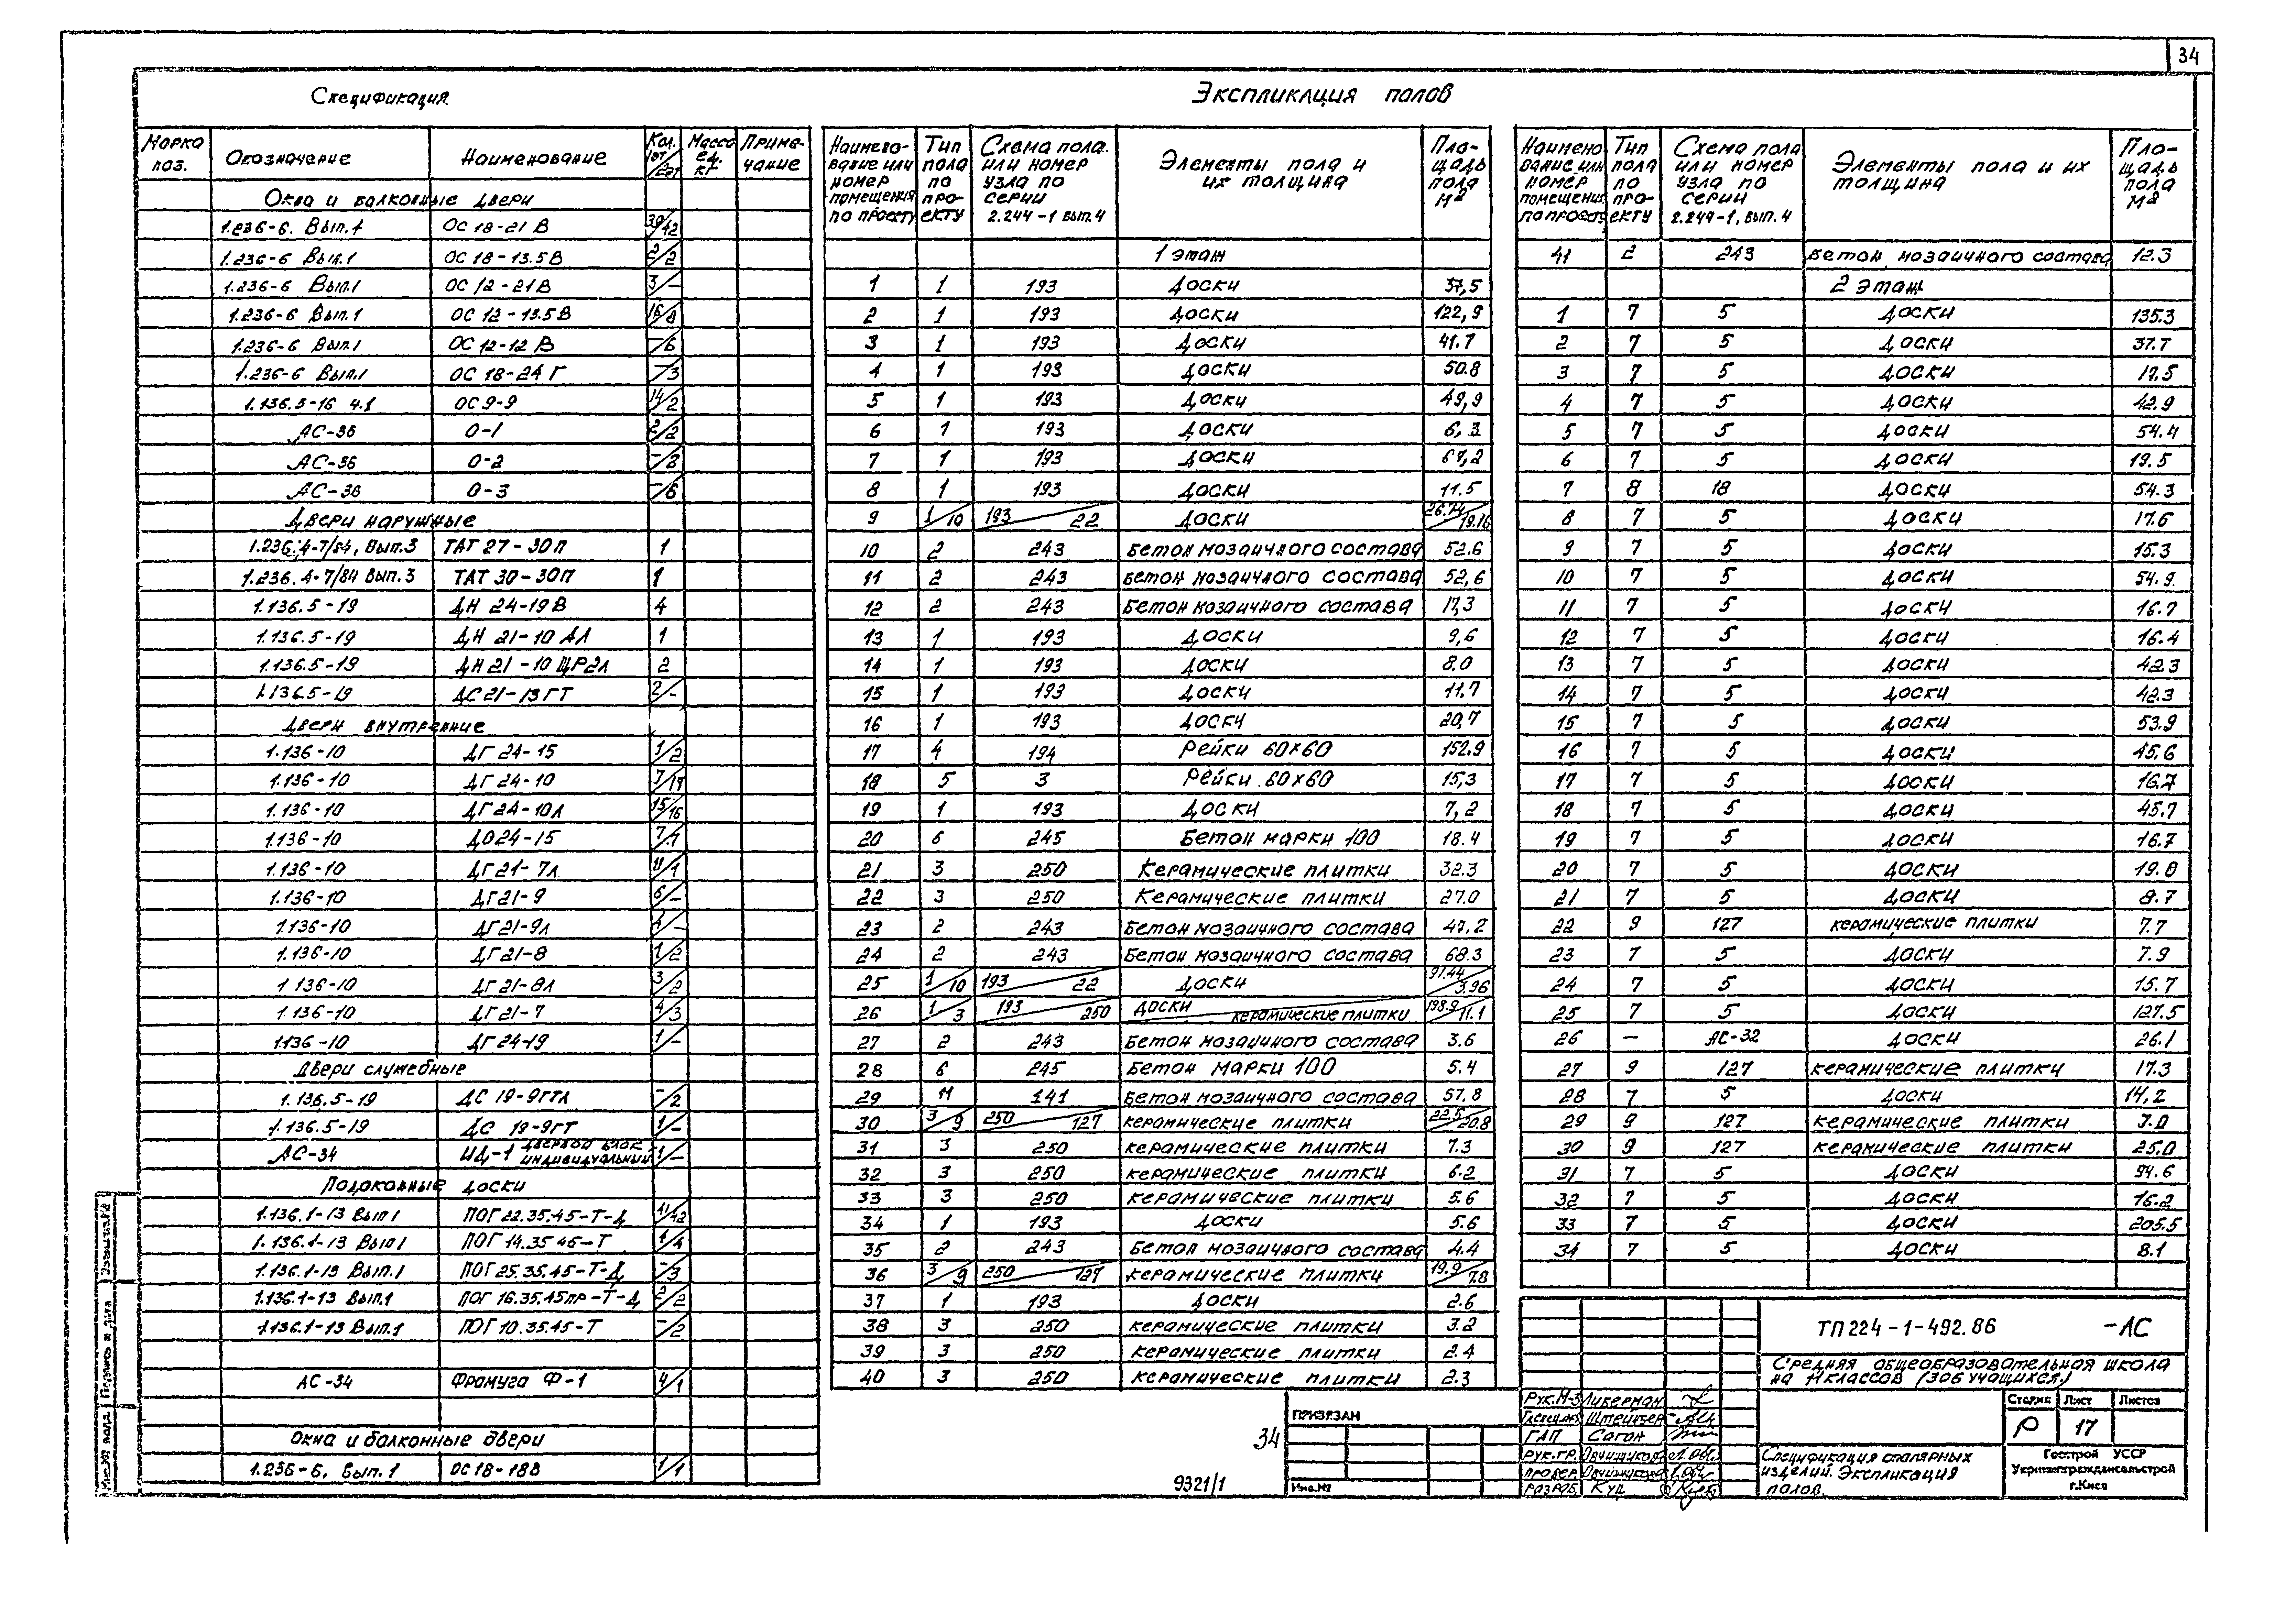 34
Спецификация
Марка поз. Обозначение Наименование Кол. 1эт/2эт Масса ед. кг Примечание
Окна и балконные двери
1.236-6. Вып.1 ОС 18-21 В 39/42
1.236-6 Вып.1 ОС 18-13.5В 2/2
1.236-6 Вып.1 ОС 12-21В 3/-
1.236-6 Вып.1 ОС 12-13.5В 16/8
1.236-6 Вып.1 ОС 12-12 В -/6
1.236-6 Вып.1 ОС 18-24 Г -/3
1.136.5-16 ч.1 ОС 9-9 14/2
АС-36 О-1 2/2
АС-36 О-2 -/3
АС-36 О-3 -/6
Двери наружные
1.236.4-7/84, Вып.3 ТАТ 27-30П 1
1.236.4-7/84 Вып.3 ТАТ 30-30П 1
1.136.5-19 ДН 24-19В 4
1.136.5-19 ДН 21-10 АЛ 1
1.136.5-19 ДН 21-10 ЩР2Л 2
1.136.5-19 ДС 21-13 ГТ 2/-
Двери внутренние
1.136-10 ДГ 24-15 1/2
1.136-10 ДГ 24-10
1.136-10 ДГ 24-10Л 15/16
1.136-10 ДО24-15 7/1
1.136-10 ДГ21-7Л 11/1
1.136-10 ДГ21-9 6/-
1.136-10 ДГ21-9Л
1.136-10 ДГ21-8 1/2
1 136-10 ДГ21-8Л 3/2
1.136-10 ДГ21-7 4/3
1.136-10 ДГ 24-19 1/-
Двери служебные
1.136.5-19 ДС 19-9ГТЛ -/2
1.136.5-19 ДС 19-9ГТ 1/-
АС-34 ИД-1 дверной блок индивидуальный 1/-
Подоконные доски
1.136.1-13 Вып1 ПОГ 22.35.45-Т-Д 41/42
1.136.1-13 Вып1 ПОГ 14.35 45-Т 1/4
1.136.1-13 Вып.1 ПОГ 25.35.45-Т-Д -/3
1.136.1-13 Вып.1 ПОГ 16.35.45пр-Т-Д 2/2
1.136.1-13 Вып.1 ПОГ 10.35.45-Т -/2
АС-34 Фрамуга Ф-1 4/1
Окна и балконные двери
1.236-6. Вып.1 ОС 18-18В 1/1
Экспликация полов
Наименование или номер помещения по проекту Тип пола по проекту Схема пола или номер узла по серии 2.244-1 вып.4 Элементы пола и их толщина Площадь пола м2
1 этаж
1 1 193 Доски 37,5
2 1 193 Доски 122,9
3 1 193 Доски 41.7
4 1 193 Доски 50.8
5 1 193 Доски 49,9
6 1 193 Доски 6,3
7 1 193 Доски 67,2
8 1 193 Доски 11.5
9 1/10 193/22 Доски 26.74/19.16
10 2 243 Бетон мозаичного состава 52.6
11 2 243 Бетон мозаичного состава 52,6
12 2 243 Бетон мозаичного состава 17,3
13 1 193 Доски 9,6
14 1 193 Доски 8.0
15 1 193 Доски 11,7
16 1 193 Доски 20,7
17 4 194 Рейки 60×60 152.9
18 5 3 Рейки 60×60 15,3
19 1 193 Доски 7,2
20 6 245 Бетон марки 100 18.4
21 3 250 Керамические плитки 32.3
22 3 250 Керамические плитки 27.0
23 2 243 Бетон мозаичного состава 47.2
24 2 243 Бетон мозаичного состава 68.3
25 1/10 193/22 Доски 97.44/3.96
26 1/3 193/250 Доски/керамические плитки 198.9/11.1
27 2 243 Бетон мозаичного состава 3.6
28 6 245 Бетон марки 100 5.4
29 11 141 Бетон мозаичного состава 57.8
30 3/9 250/127 керамические плитки 22.5/20.8
31 3 250 керамические плитки 7.3
32 3 250 керамические плитки 6.2
33 3 250 керамические плитки 5.6
34 1 193 Доски 5.6
35 2 243 Бетон мозаичного состава 4.4
36 3/9 250/127 керамические плитки 19.9/7.8
37 1 193 Доски 2.6
38 3 250 керамические плитки 3.2
39 3 250 керамические плитки 2.4
40 3 250 керамические плитки 2.3
Наименование или номер помещения по проекту Тип пола по проекту Схема пола или номер узла по серии 2.244-1, вып.4 Элементы пола и их толщина Площадь пола м2
41 2 243 Бетон мозаичного состава 12.3
2 этаж
1 7 5 Доски 135.3
2 7 5 Доски 37.7
3 7 5 Доски 17.5
4 7 5 Доски 42.9
5 7 5 Доски 54.4
6 7 5 Доски 19.5
7 8 18 Доски 54.3
8 7 5 Доски 17.6
9 7 5 Доски 15.3
10 7 5 Доски 54.9
11 7 5 Доски 16.7
12 7 5 Доски 16.4
13 7 5 Доски 42.3
14 7 5 Доски 42.3
15 7 5 Доски 53.9
16 7 5 Доски 45.6
17 7 5 Доски 16.7
18 7 5 Доски 45.7
19 7 5 Доски 16.7
20 7 5 Доски 19.8
21 7 5 Доски 8.7
22 9 127 керамические плитки 7.7
23 7 5 Доски 7.9
24 7 5 Доски 15.7
25 7 5 Доски 127.5
26 — АС-32 Доски 26.1
27 9 127 керамические плитки 17.3
28 7 5 Доски 14,2
29 9 127 керамические плитки 7.0
30 9 127 керамические плитки 25.0
31 7 5 Доски 94.6
32 7 5 Доски 16.2
33 7 5 Доски 205.5
34 7 5 Доски 8.1
ТП 224-1-492.86 -АС
Средняя общеобразовательная школа
на 11 классов (306 учащихся)
Стадия Лист Листов
Р 17
Спецификация столярных
изделий. Экспликация
полов.
Госстрой УССР
Укрнипграждансельстрой
г. Киев
Рук.М-3 Либерман
Гл.спец. Штейнбер
ГАП Соган
Рук.гр. Овчинникова
Провер. Овчинникова
Разраб. Куц
Привязан
Инв.№
34
9321/1
Взам.инв.№
Подпись и дата
Инв.№ подл.